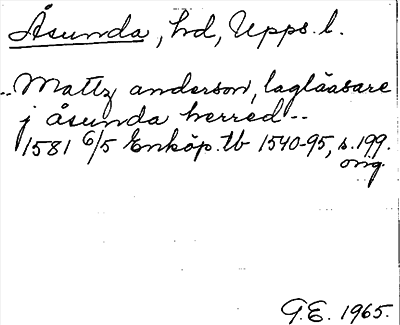 Åsunda, hd, Upps. l.
..Mattz anderson, laglåasare
j åsunda herred--
1581 6/5 Enköp. tb 1540-95, s. 199.
orig.
G.E. 1965.